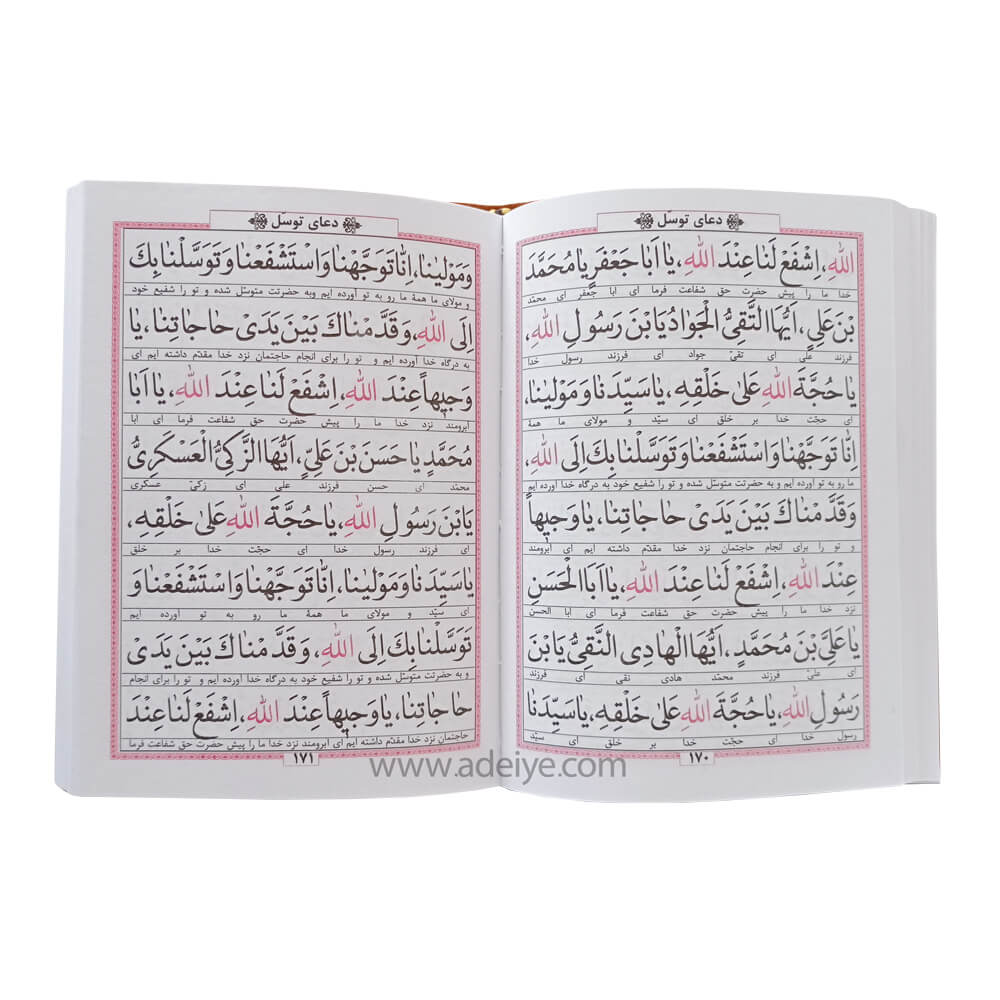 دعای توسّل
اللهِ، اِشْفَعْ لَنا عِنْدَ اللهِ، يا اَبا جَعْفَرٍ يا مُحَمَّدَ
خدا ما را پیش حضرت حق شفاعت فرما ای ابا جعفر ای محمّد
بْنَ عَلِيٍّ، اَيُّهَا التَّقِيُّ الْجَوادُ يَا بْنَ رَسُولِ اللهِ،
فرزند علی ای تقیّ جواد ای فرزند رسول خدا
يا حُجَّةَ اللهِ عَلىٰ خَلْقِهِ، يا سَيِّدَنا وَ مَوْلينا،
ای حجّت خدا بر خلق ای سیّد و مولای ما همهٔ
اِنّا تَوَجَّهْنا وَ اسْتَشْفَعْنا وَ تَوَسَّلْنا بِكَ اِلَى اللهِ،
ما رو به تو آورده ایم و به حضرتت متوسّل شده و تو را شفیع خود به درگاه خدا آورده ایم
وَ قَدَّمْناكَ بَيْنَ يَدَىْ حاجاتِنا، يا وَجيهاً
و تو را برای انجام حاجتمان نزد خدا مقدّم داشته ایم ای آبرومند
عِنْدَ اللهِ، اِشْفَعْ لَنا عِنْدَ اللهِ، يا اَبَا الْحَسَنِ
نزد خدا ما را پیش حضرت حق شفاعت فرما ای ابا الحسن
يا عَلِيَّ بْنَ مُحَمَّدٍ، اَيُّهَا الْهادِى النَّقِيُّ يَا بْنَ
ای علی فرزند محمّد هادی نقی ای فرزند
رَسُولِ اللهِ، يا حُجَّةَ اللهِ عَلىٰ خَلْقِهِ، يا سَيِّدَنا
رسول خدا ای حجّت خدا بر خلق ای سیّد
۱۷۰
دعای توسّل
وَ مَوْلينا، اِنّا تَوَجَّهْنا وَ اسْتَشْفَعْنا وَ تَوَسَّلْنا بِكَ
و مولای ما همهٔ ما رو به تو آورده ایم وبه حضرتت متوسّل شده و تو را شفیع خود
اِلَى اللهِ، وَ قَدَّمْناكَ بَيْنَ يَدَىْ حاجاتِنا، يا
به درگاه خدا آورده ایم و تو را برای انجام حاجتمان نزد خدا مقدّم داشته ایم ای
وَجيهاً عِنْدَ اللهِ، اِشْفَعْ لَنا عِنْدَ اللهِ، يا اَبا
آبرومند نزد خدا ما را پیش حضرت حق شفاعت فرما ای ابا
مُحَمَّدٍ يا حَسَنَ بْنَ عَلِيٍّ، اَيُّهَا الزَّكِيُّ الْعَسْكَرِيُّ
محمّد ای حسن فرزند علی ای زکیّ عسکری
يَا بْنَ رَسُولِ اللهِ، يا حُجَّةَ اللهِ عَلىٰ خَلْقِهِ،
ای فرزند رسول خدا ای حجّت خدا بر خلق
يا سَيِّدَنا وَ مَوْلينا، اِنّا تَوَجَّهْنا وَ اسْتَشْفَعْنا وَ
ای سیّد و مولای ما همهٔ ما رو به تو آورده ایم
تَوَسَّلْنا بِكَ اِلَى اللهِ، وَ قَدَّمْناكَ بَيْنَ يَدَىْ
و به حضرتت متوسّل شده و تو را شفیع خود به درگاه خدا آورده ایم و تو را برای انجام
حاجاتِنا، يا وَجيهاً عِنْدَ اللهِ، اِشْفَعْ لَنا عِنْدَ
حاجتمان نزد خدا مقدّم داشته ایم ای آبرومند نزد خدا ما را پیش حضرت حق شفاعت فرما
۱۷۱
www.adeiye.com